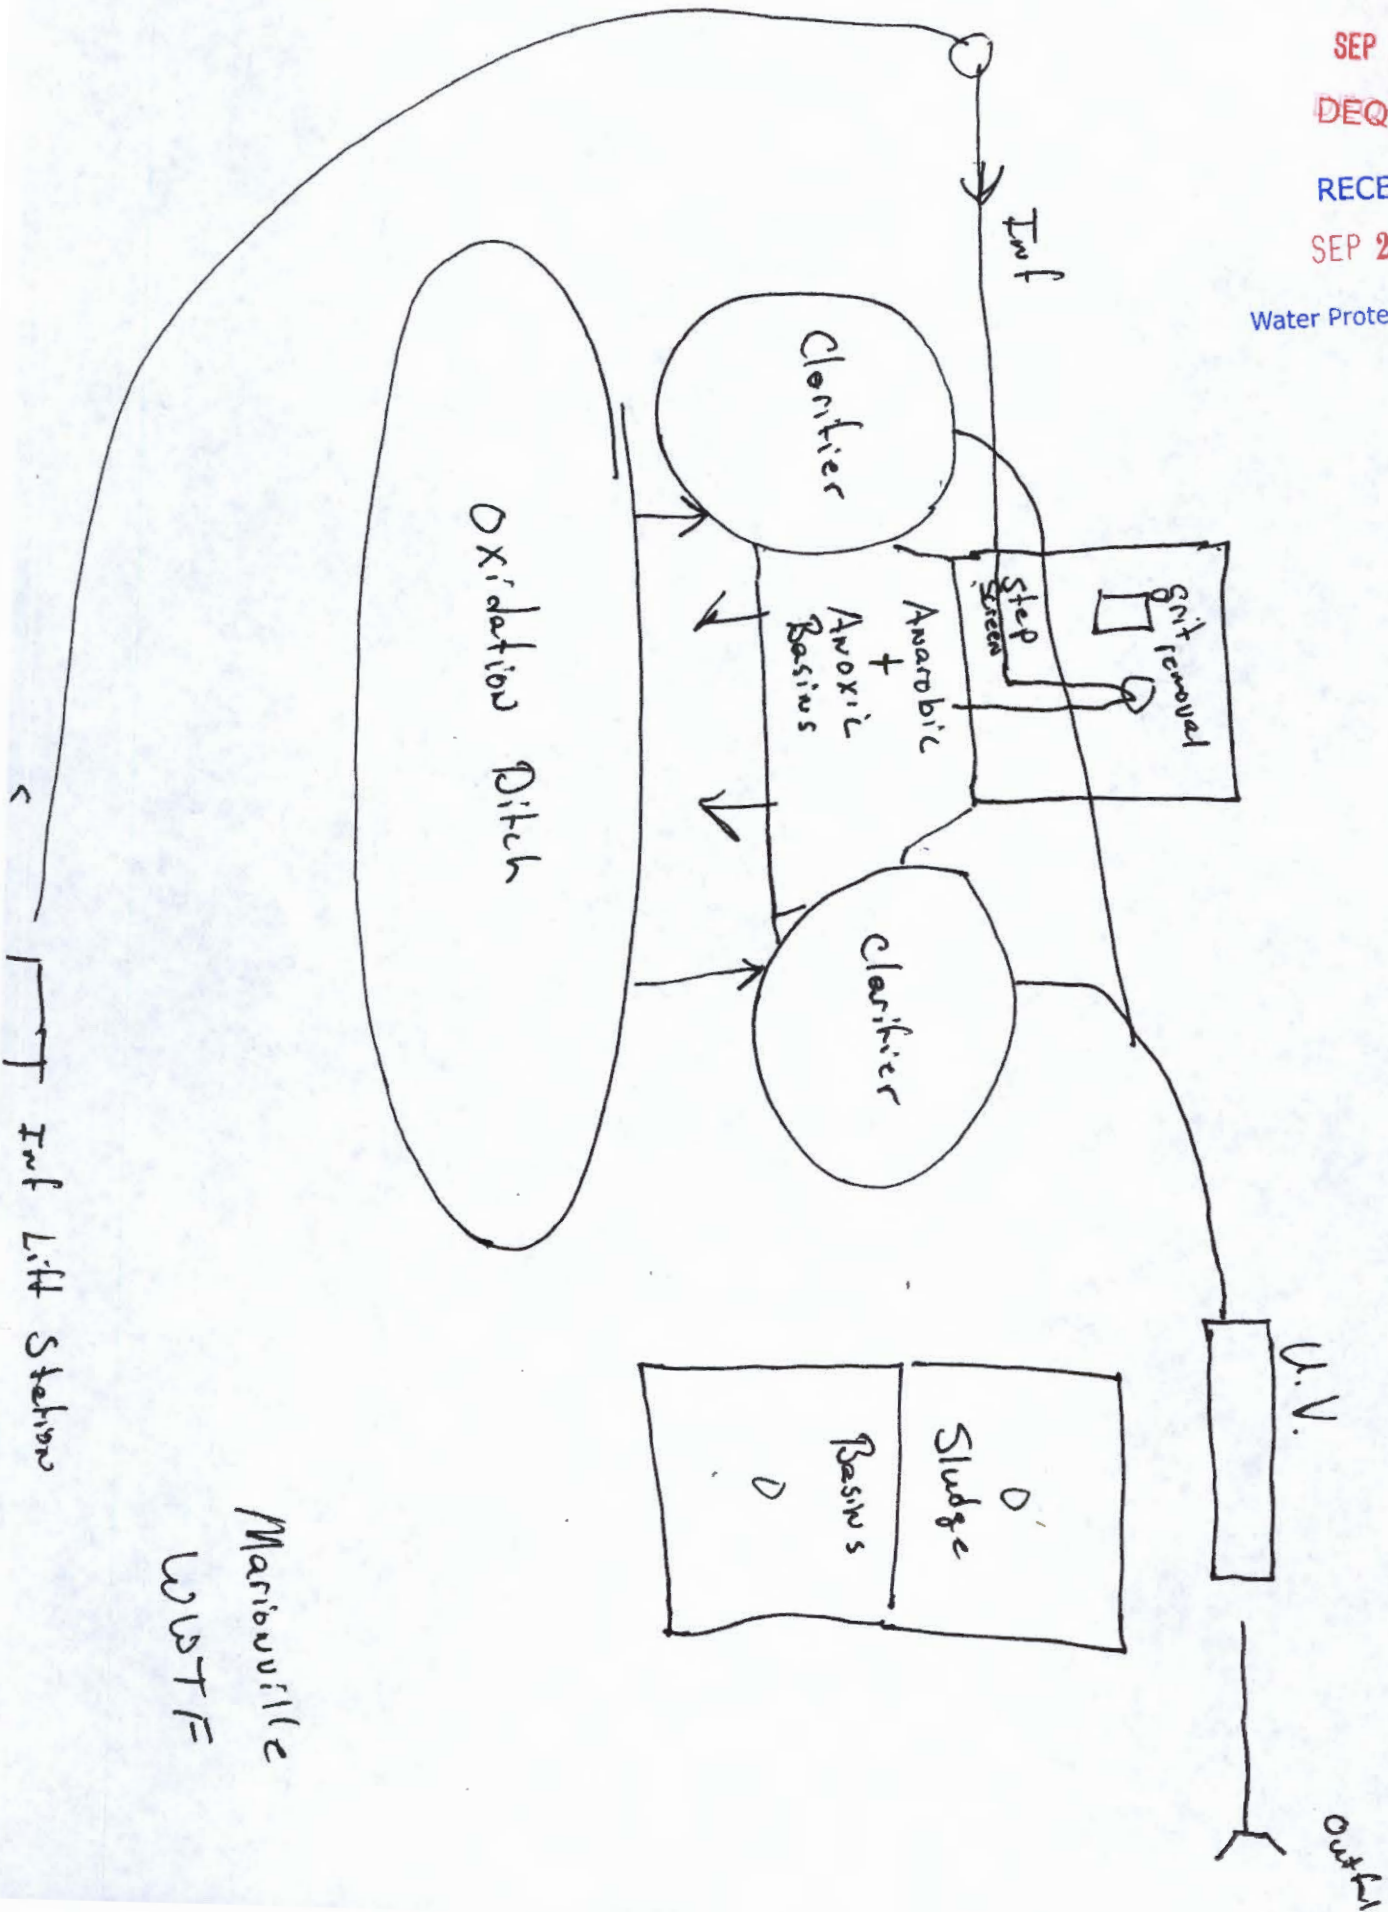 SEP
DEQ
RECE
SEP 2
Water Prote
Inf
Clarifier
grit removal
Step
Screen
Anarobic
+
Anoxic
Basins
Oxidation Ditch
Clarifier
U.V.
Sludge
Basins
Outfal
Inf Lift Station
Marionville
WWTF